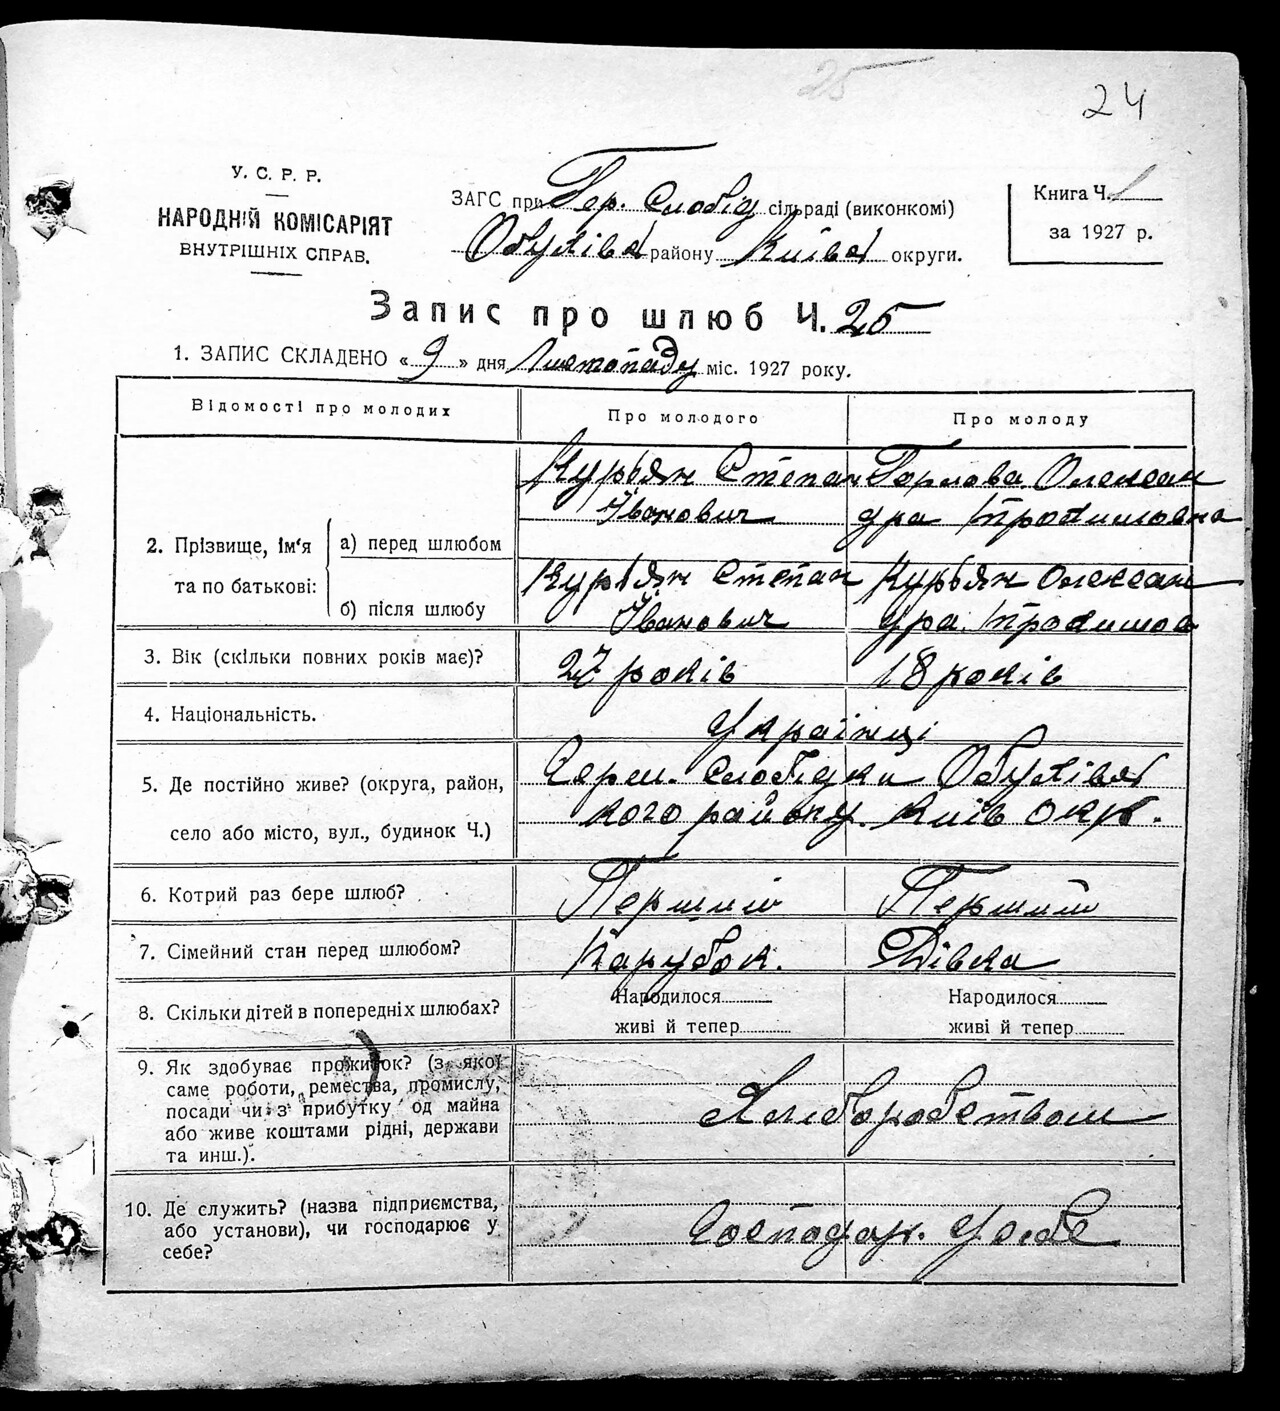 25
24
У. С. Р. Р.
НАРОДНІЙ КОМІСАРІЯТ
ВНУТРІШНІХ СПРАВ.
ЗАГС при Гер. Слобід сільраді (виконкомі)
Обухівс району Київс округи.
Книга Ч. 1
за 1927 р.
Запис про шлюб Ч. 25
1. ЗАПИС СКЛАДЕНО « 9 » дня Листопаду міс. 1927 року.
Відомості про молодих
Про молодого
Про молоду
2. Прізвище, ім'я
та по батькові:
а) перед шлюбом
Курьян Степан
Іванович
Олексан
дра
б) після шлюбу
Курьян Степан
Іванович
Курьян Олексан
дра
3. Вік (скільки повних років має)?
27 років
18 років
4. Національність.
Українці
5. Де постійно живе? (округа, район,
село або місто, вул., будинок Ч.)
Герм. Слобідки Обухівс
кого району Київ окр.
6. Котрий раз бере шлюб?
Перший
Перший
7. Сімейний стан перед шлюбом?
Парубок.
Дівка
8. Скільки дітей в попередніх шлюбах?
Народилося
живі й тепер
Народилося
живі й тепер
9. Як здобуває прожиток? (з якої
саме роботи, ремества, промислу,
посади чи з прибутку од майна
або живе коштами рідні, держави
та инш.).
Хліборобством
10. Де служить? (назва підприємства,
або установи), чи господарює у
себе?
Господар. у себе